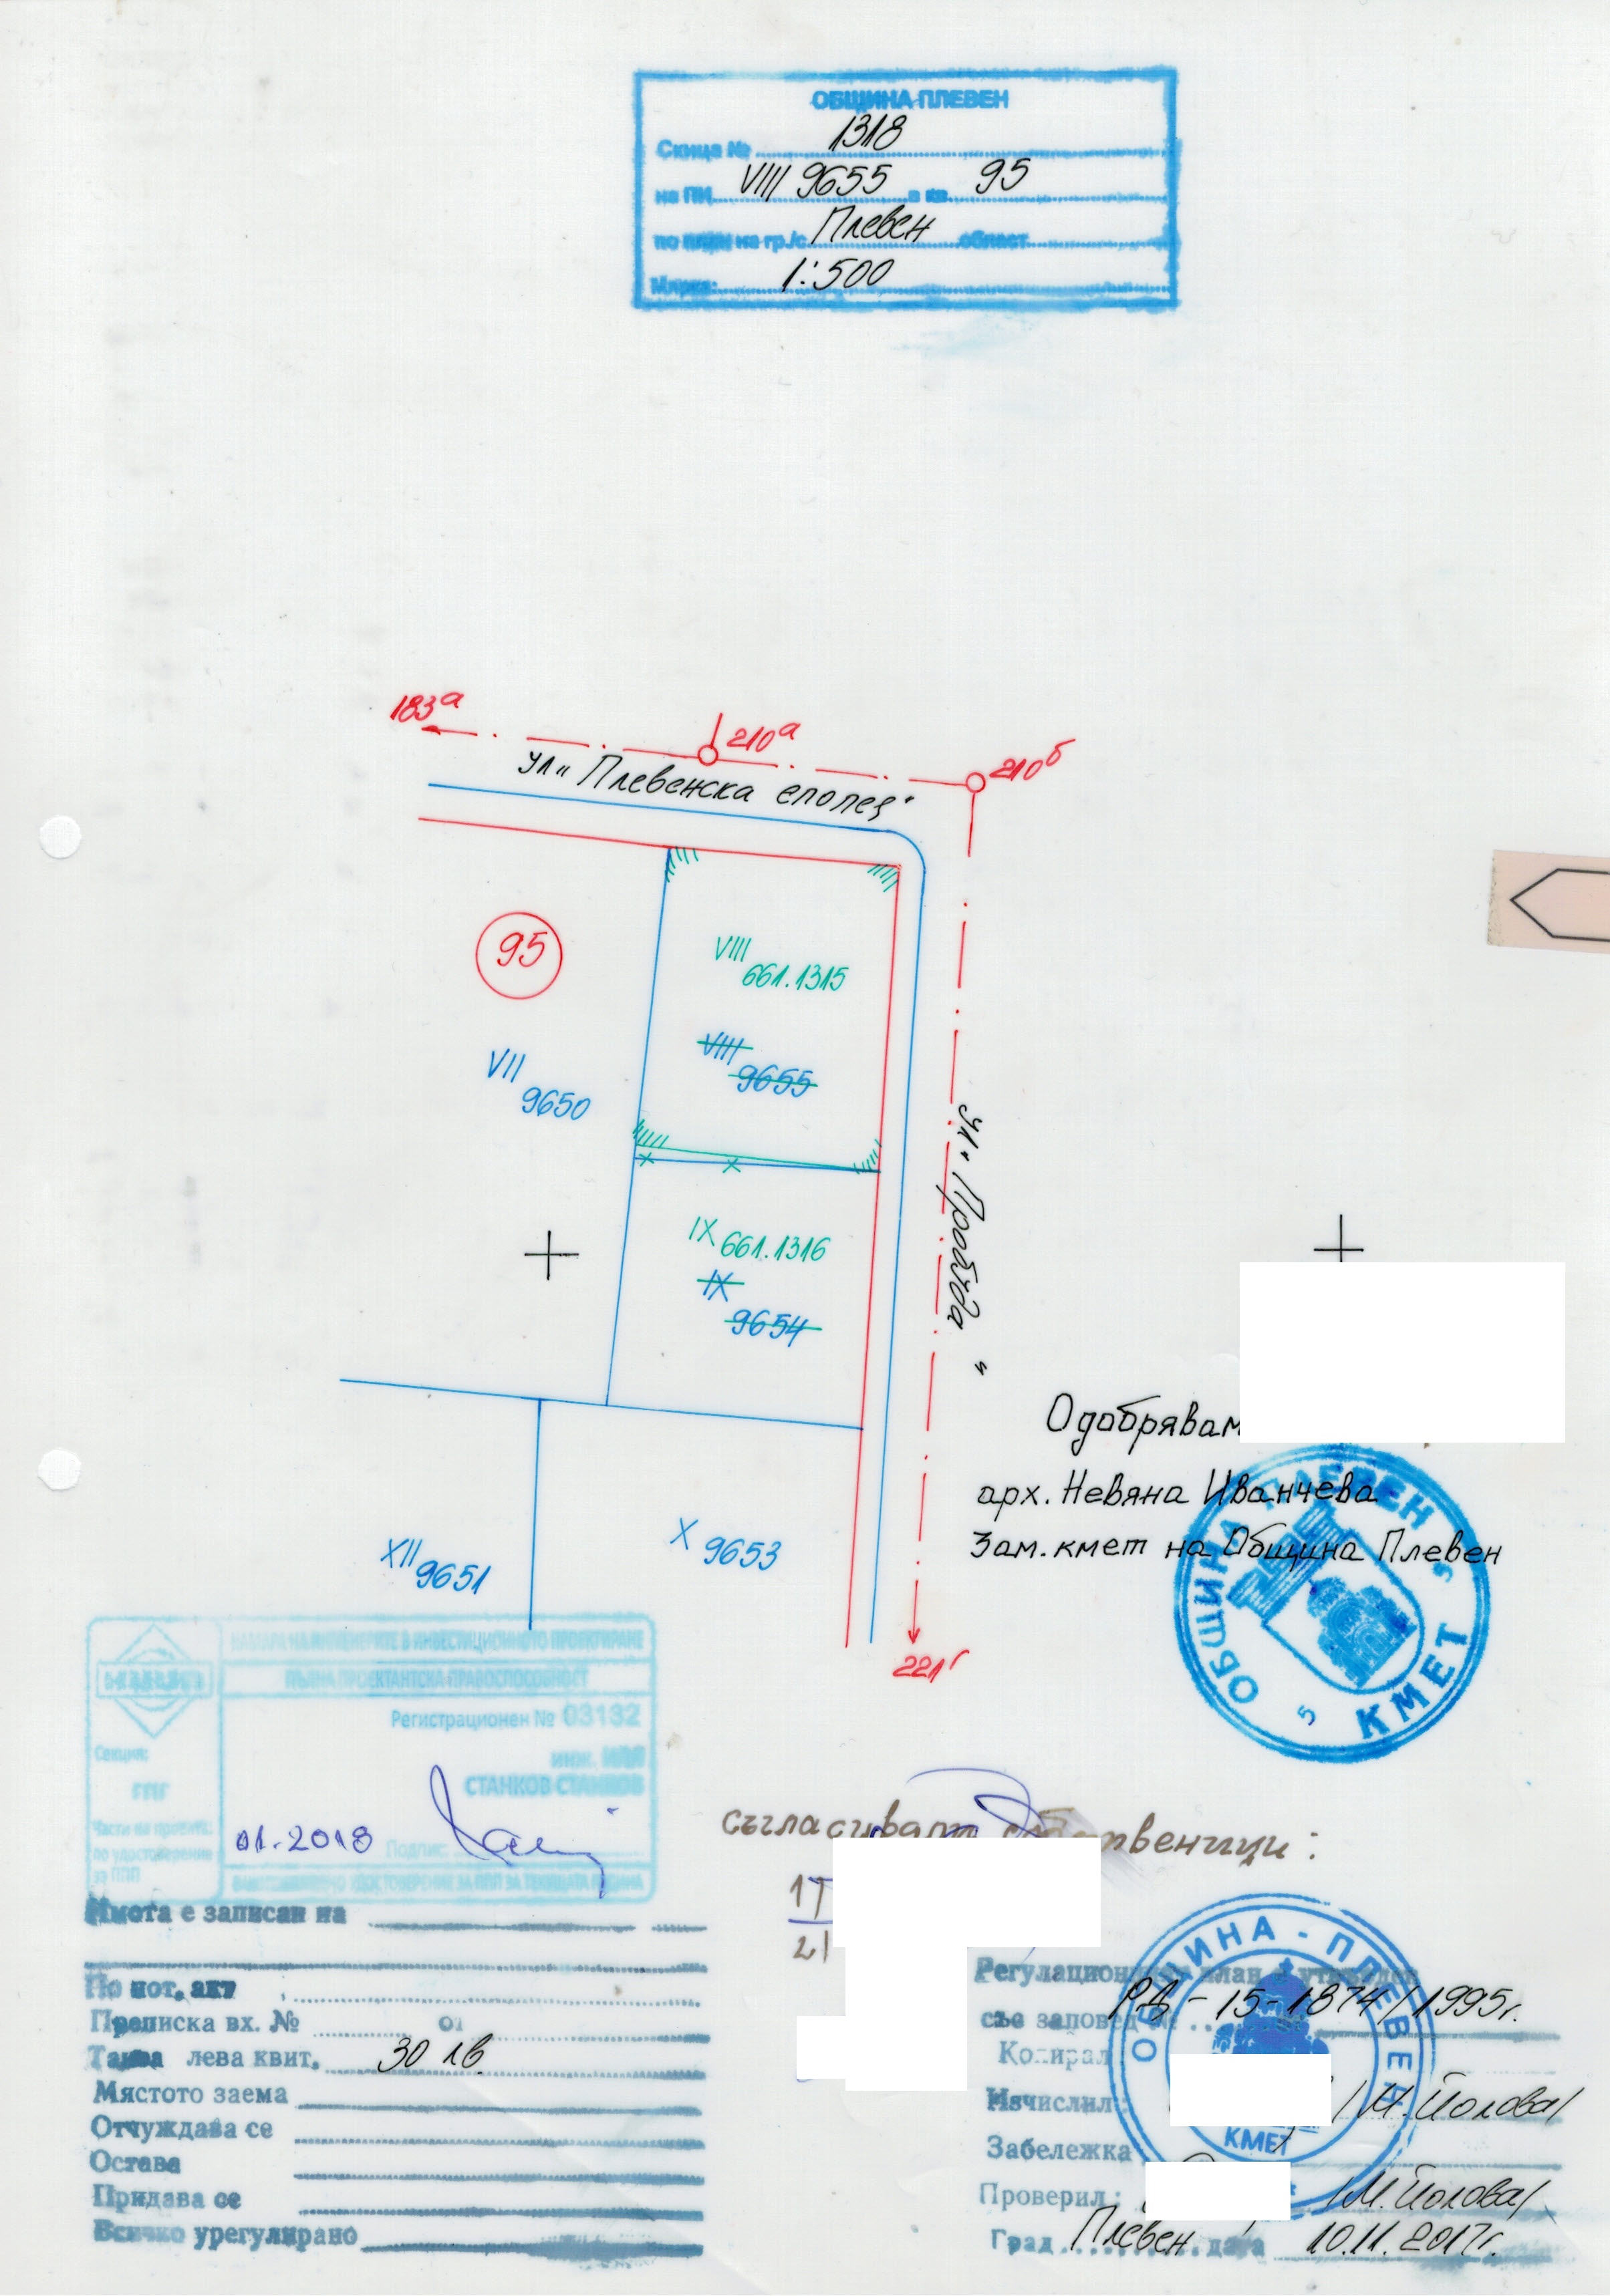 ОБЩИНА ПЛЕВЕН
Скица № 1318
на ПИ VIII 9655 в кв. 95
по план на гр./с. Плевен област
Мярка: 1:500
183а
210а
210б
ул. "Плевенска епопея"
95
VIII
661.1315
VIII
9655
VII
9650
ул. "Пробуда"
IX 661.1316
IX
9654
Одобрявам
арх. Невяна Иванчева
Зам. кмет на Община Плевен
ОБЩИНА ПЛЕВЕН
КМЕТ
5
5
XII 9651
X 9653
221г
КАМАРА НА ИНЖЕНЕРИТЕ В ИНВЕСТИЦИОННОТО ПРОЕКТИРАНЕ
ПЪЛНА ПРОЕКТАНТСКА ПРАВОСПОСОБНОСТ
Регистрационен № 03132
Секция:
инж.
СТАНКОВ СТАНКОВ
Части на проекта:
по удостоверение
за ППП
01.2018
Подпис
УДОСТОВЕРЕНИЕ ЗА ППП ЗА ТЕКУЩАТА ГОДИНА
съгласували собственици:
1/
2/
Имота е записан на
По нот. акт
Преписка вх. № от
Такса лева квит. 30 лв
Мястото заема
Отчуждава се
Остава
Придава се
Всичко урегулирано
Регулационния план е утвърден
със заповед № РД-15-1874/1995г.
Копирал
Изчислил: /Н. Йолова/
Забележка
Проверил: /М. Йолова/
Град Плевен дата 10.11.2017г.
ОБЩИНА - ПЛЕВЕН
КМЕТ